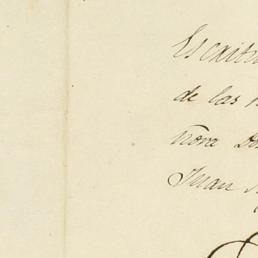 Escritu
de las
ñora Do
Juan